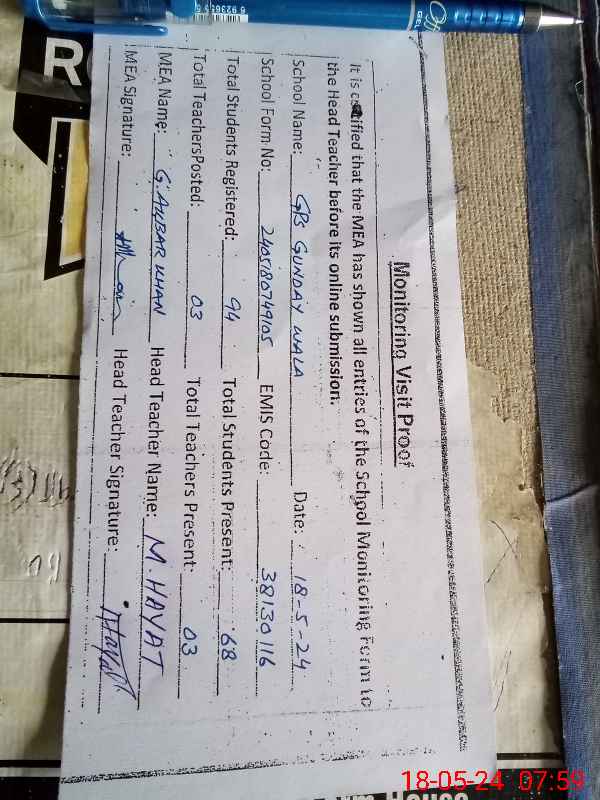 Monitoring Visit Proof
It is certified that the MEA has shown all entries of the School Monitoring Form to
the Head Teacher before its online submission.
School Name: GPS GUNDAY WALA Date: 18-5-24
School Form No: 2405180749105 EMIS Code: 38130116
Total Students Registered: 94 Total Students Present: 68
Total TeachersPosted: 03 Total Teachers Present: 03
MEA Name: G. AKBAR KHAN Head Teacher Name: M. HAYAT
MEA Signature: Head Teacher Signature: Hayat
18-05-24 07:59